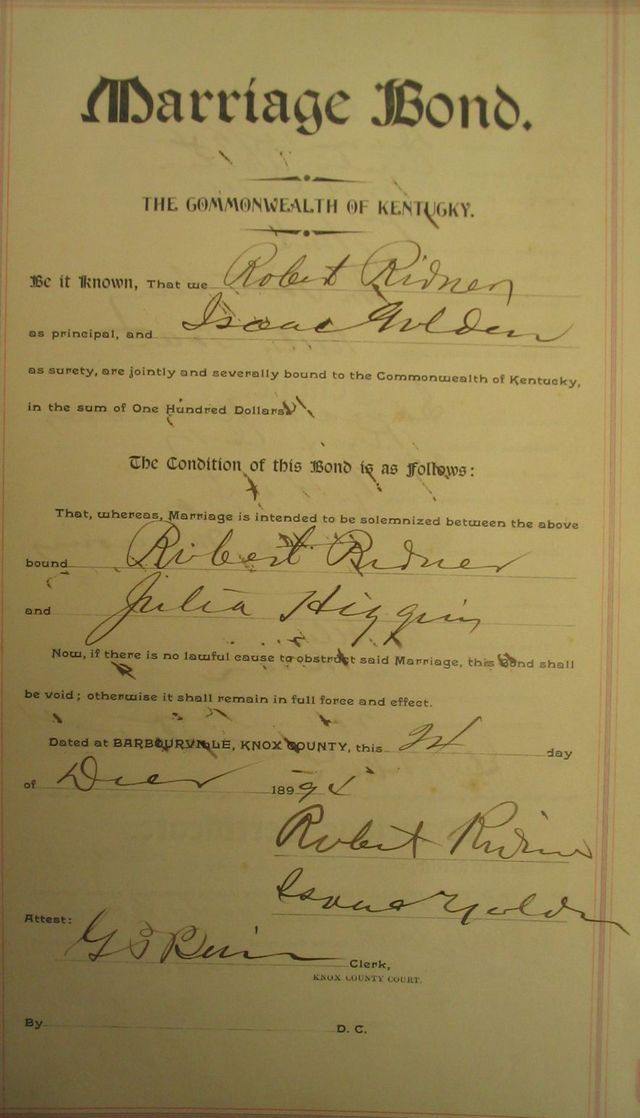 Marriage Bond.
THE COMMONWEALTH OF KENTUCKY.
Be it Known, That we Robert Ridner
as principal, and Isaac Golden
as surety, are jointly and severally bound to the Commonwealth of Kentucky,
in the sum of One Hundred Dollars.
The Condition of this Bond is as Follows:
That, whereas, Marriage is intended to be solemnized between the above
bound Robert Ridner
and Julia Higgins
Now, if there is no lawful cause to obstruct said Marriage, this Bond shall
be void; otherwise it shall remain in full force and effect.
Dated at BARBOURVILLE, KNOX COUNTY, this day
of Decr 189
Robert Ridner
Isaac Golden
Attest:
G Clerk,
KNOX COUNTY COURT.
By D. C.